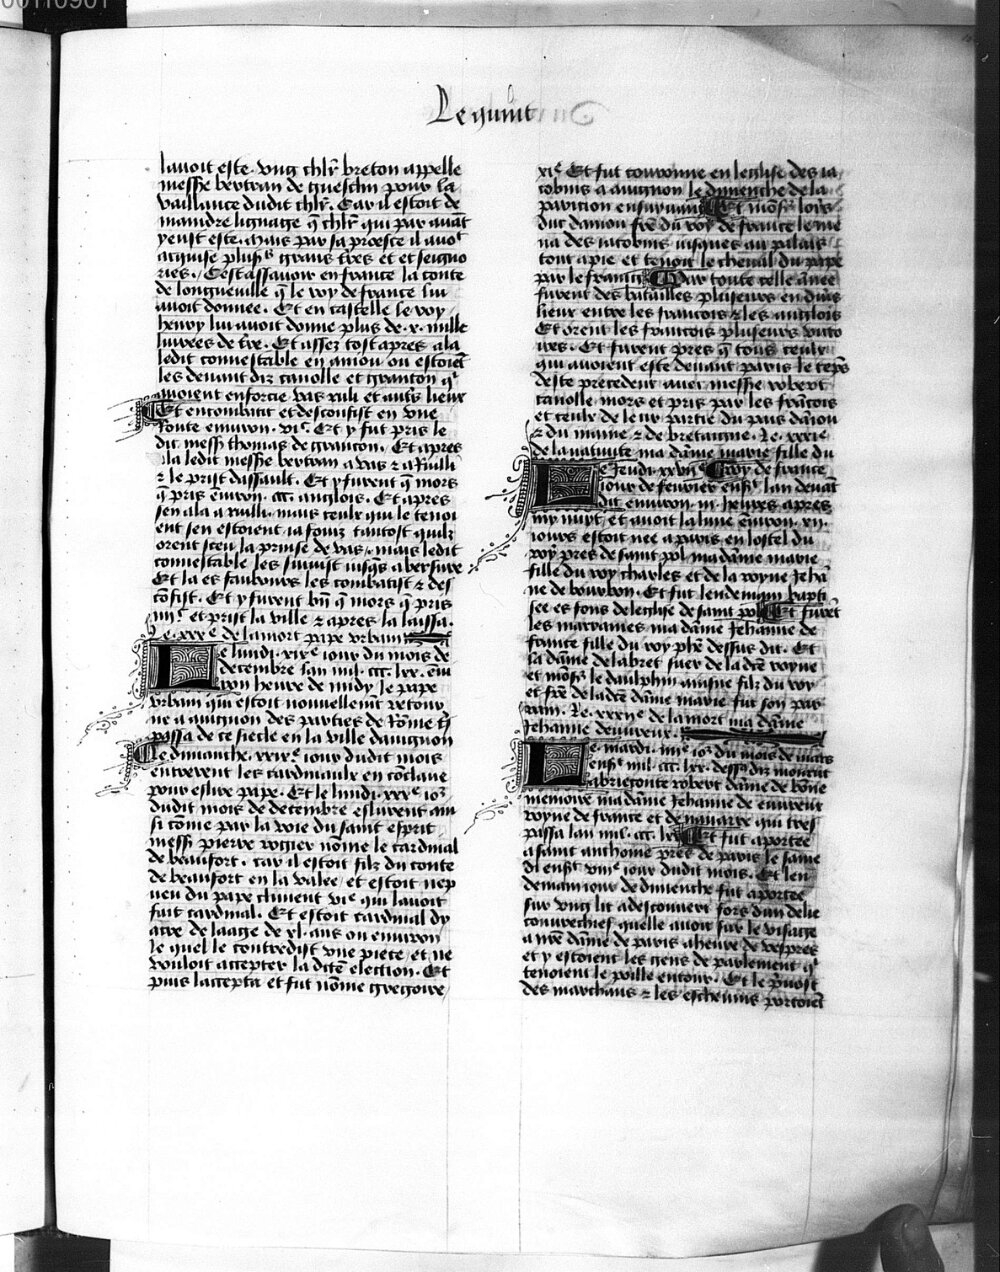 00110901
Le quint
lauoit este. vng chlr breton appelle
messe bertran de guesclin pour la
vaillance dudit chlr. Car il estoit de
maindre lignage q chlr qui par auāt
yeust este. mais par sa proesce il auoᵗ
acquise plusˢ grans tres et et seigno
ries. Cest assauoir en france la conte
de longueuille q le roy de france lui
auoit donnee. Et en castelle le roy
henry lui auoit donne plus de .x. mille
liurees de tre. Et assez tost apres ala
ledit connestable en aniou ou estoiēt
les deuant diz canolle et granton qⁱ
auoient enforcie vas ruli et autˢ lieux
Et encombatit et desconfist en vne
route enuiron. viᶜ. Et y fut pris le
dit messe thomas de grancon. Et apres
ala ledit messe bertran a vas z a Rulli
z le prist dassault. Et y furent q mors
q pris enuron .ccc. anglois. Et apres
sen ala a ruilli. mais ceulx qui le tenoi
ent sen estoient ia fouiz tantost quilz
orent sceu la prinse de vas. mais ledit
connestable les suiuist iusqs a bersuire
Et la es faubours les combatist z des
cōfist. Et y furent bn q mors q pris
iiiᶜ. et prist la ville z apres la laissa.
Le .xxxᵉ de la mort pape vrbain
Le lundi .xixᵉ iour du mois de
decembre lan mil .ccc. lxx. eui
ron heure de midy le pape
vrbain qui estoit nouuellemēt retour
ne a auignon des parties de Rōme tˢ
passa de ce siecle en la ville dauignon
Le dimanche .xxixᵉ iour dudit mois
entrerent les cardinaulx en cōclaue
pour eslire pape. Et le lundi .xxxᵉ ioᵘʳ
dudit mois de decembre eslirent aui
si cōme par la voie du saint esprit
messe pierre rogier nōme le cardinal
de beaufort. car il estoit filz du conte
de beaufort en la valee. et estoit nep
ueu du pape climent viᵉ qui lauoit
fait cardinal. Et estoit cardinal dy
acre de laage de xl. ans ou enuiron
le quel le contredist vne piece. et ne
vouloit accepter la dicte election. Et
puis laccepta et fut nōme gregoire
xiᵉ. Et fut couronne en leglise des ia
cobins a auignon le dimenche de la
parition ensuyuant Et monsˢ loys
duc daniou frē du roy de france le me
na des iacobins iusques au palais
tout a pie et tenoit le cheual du pape
par le frain Par toute celle ānee
furent des batailles plusieurs en diuˢ
lieux entre les francois z les anglois
Et orent les francois plusieurs victo
ires. Et furent pres q tous ceulx
qui auoient este deuant paris le tēps
deste precedent auec messe robert
canolle mors et pris par les frācois
et ceulx de leur partie du pais dāiou
z du maine z de bretaigne. Le .xxxiᵉ
de la natiuite ma dāme marie fille du
Le Jeudi .xxviiᵉ roy de france
iour de feurier ensˢ lan deuāt
dit enuiron .iii. heures apres
my nuyt, et auoit la lune enuirōn .xii.
iours estoit nee a paris en lostel du
roy pres de saint pol ma dāme marie
fille du roy charles et de la royne Jehā
ne de bourbon. Et fut lendemain bapti
see es fons de leglise de saint pol Et furēt
les marraines ma dāme Jehanne de
france fille du roy phē dessus dit. Et
la dāme de labret suer de la dcē royne
et monsˢ le daulphin ainsne filz du roy
et frē de la dcē dāme marie fut son par
rain. Le .xxxiiᵉ de la mort ma dāme
Jehanne deureux.
Le mardi .iiiiᵉ ioᵘʳ du mois de mars
ensˢ mil .ccc. lxx. dess diz mourut
a briecontē robert dāme de bōne
memoire ma dāme Jehanne de eureux
royne de france et de nauarre qui tres
passa lan mil .ccc. lxx Et fut aportee
a saint anthoine pres de paris le same
di ensˢ viiiᵉ iour dudit mois. Et len
demain iour de dimenche fut aportee
sur vng lit a descouuert fors dun delie
couurechief quelle auoit sur le visage
a nrē dāme de paris a heure de vespres
et y estoient les gens de parlement qⁱ
tenoient le poille entour. Et le puost
des marchans z les escheuins portoiēt